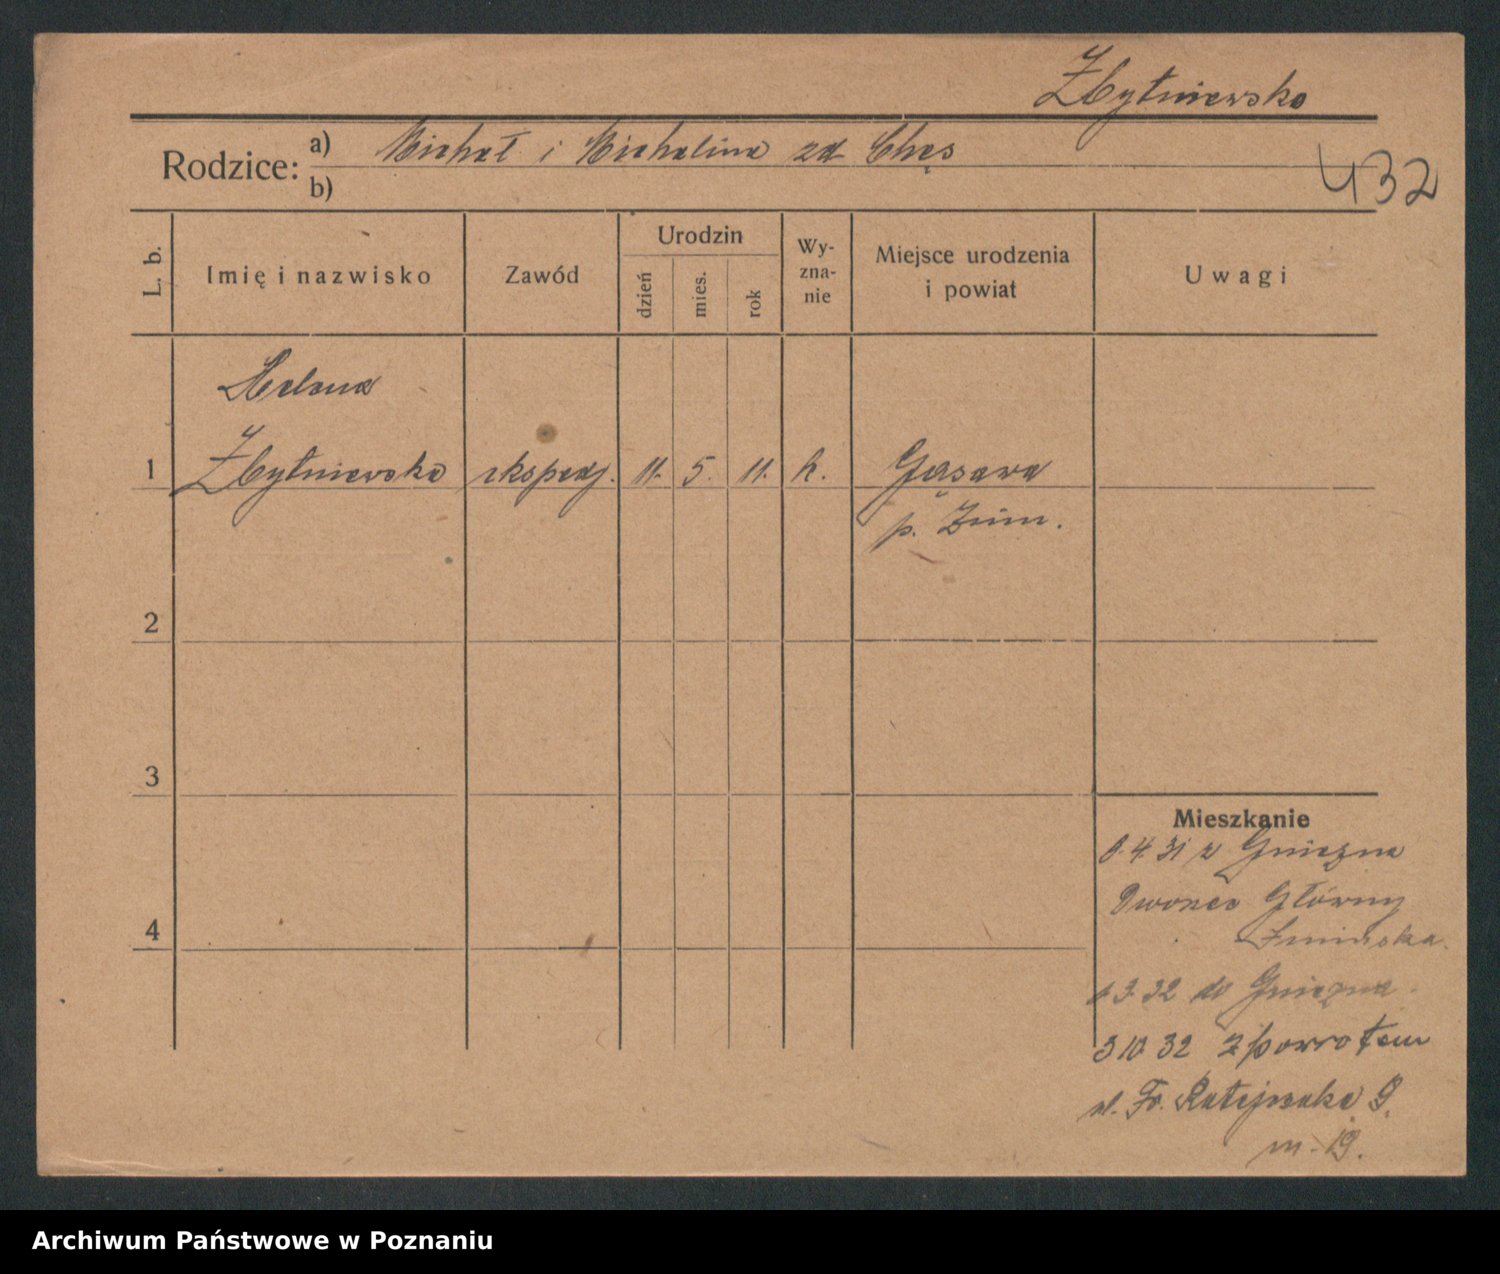 Zbytniewska
Rodzice: a) Michał i Michalina zd Chęs
b)
432
L. b.
Imię i nazwisko
Zawód
Urodzin
dzień
mies.
rok
Wy-
zna-
nie
Miejsce urodzenia
i powiat
Uwagi
Helena
1 Zbytniewska ekspedj. 11. 5. 11. k. Gąsawa
p. Żnin.
2
3
4
Mieszkanie
4. 31 z Gniezna
Dworzec Główny
3. 32 do Gniezna
3 10 32 z powrotem
ul. Fr. Ratajczaka 9.
m. 19.
Archiwum Państwowe w Poznaniu